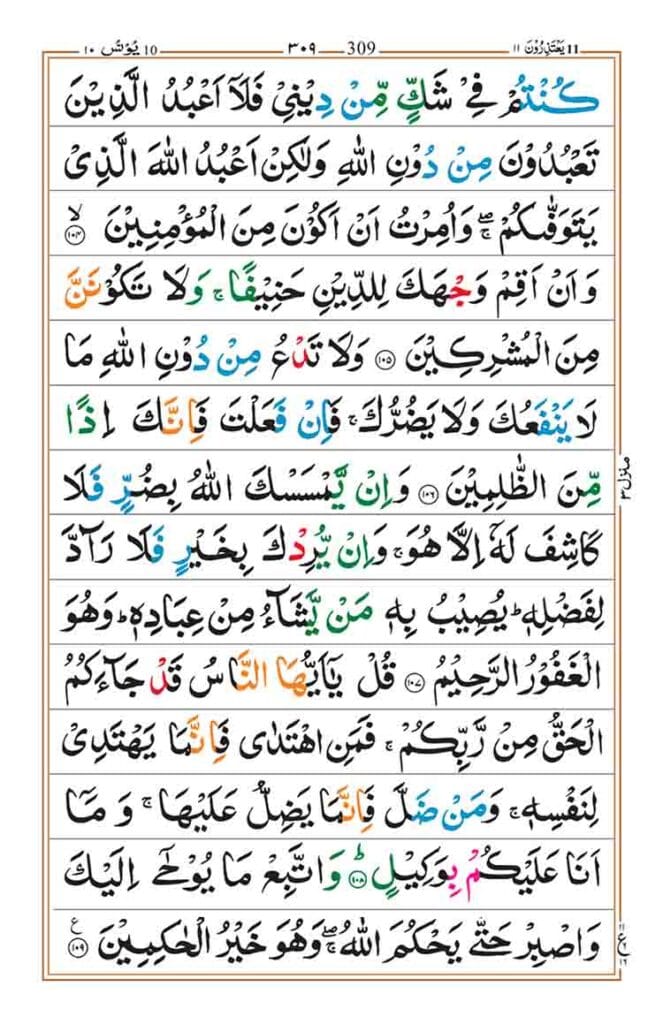 يَعْتَذِرُوْنَ ١١ 11 309 ٣٠٩ يُوْنُس ١٠ 10
كُنْتُمْ فِيْ شَكٍّ مِّنْ دِيْنِيْ فَلَاۤ اَعْبُدُ الَّذِيْنَ
تَعْبُدُوْنَ مِنْ دُوْنِ اللهِ وَلٰكِنْ اَعْبُدُ اللهَ الَّذِيْ
يَتَوَفّٰىكُمْ ۖۚ وَاُمِرْتُ اَنْ اَكُوْنَ مِنَ الْمُؤْمِنِيْنَ ۙ﴿١٠٤﴾
وَاَنْ اَقِمْ وَجْهَكَ لِلدِّيْنِ حَنِيْفًا ۚ وَلَا تَكُوْنَنَّ
مِنَ الْمُشْرِكِيْنَ ﴿١٠٥﴾ وَلَا تَدْعُ مِنْ دُوْنِ اللهِ مَا
لَا يَنْفَعُكَ وَلَا يَضُرُّكَ ۚ فَاِنْ فَعَلْتَ فَاِنَّكَ اِذًا
مِّنَ الظّٰلِمِيْنَ ﴿١٠٦﴾ وَاِنْ يَّمْسَسْكَ اللهُ بِضُرٍّ فَلَا
كَاشِفَ لَهٗۤ اِلَّا هُوَ ۚ وَاِنْ يُّرِدْكَ بِخَيْرٍ فَلَا رَآدَّ
لِفَضْلِهٖ ؕ يُصِيْبُ بِهٖ مَنْ يَّشَآءُ مِنْ عِبَادِهٖ ؕ وَهُوَ
الْغَفُوْرُ الرَّحِيْمُ ﴿١٠٧﴾ قُلْ يٰۤاَيُّهَا النَّاسُ قَدْ جَآءَكُمُ
الْحَقُّ مِنْ رَّبِّكُمْ ۚ فَمَنِ اهْتَدٰى فَاِنَّمَا يَهْتَدِيْ
لِنَفْسِهٖ ۚ وَمَنْ ضَلَّ فَاِنَّمَا يَضِلُّ عَلَيْهَا ۚ وَمَاۤ
اَنَا عَلَيْكُمْ بِوَكِيْلٍ ؕ﴿١٠٨﴾ وَاتَّبِعْ مَا يُوْحٰۤى اِلَيْكَ
وَاصْبِرْ حَتّٰى يَحْكُمَ اللهُ ۖۚ وَهُوَ خَيْرُ الْحٰكِمِيْنَ ﴿١٠٩﴾ ع
منزل ٣
١١ ع ١٦